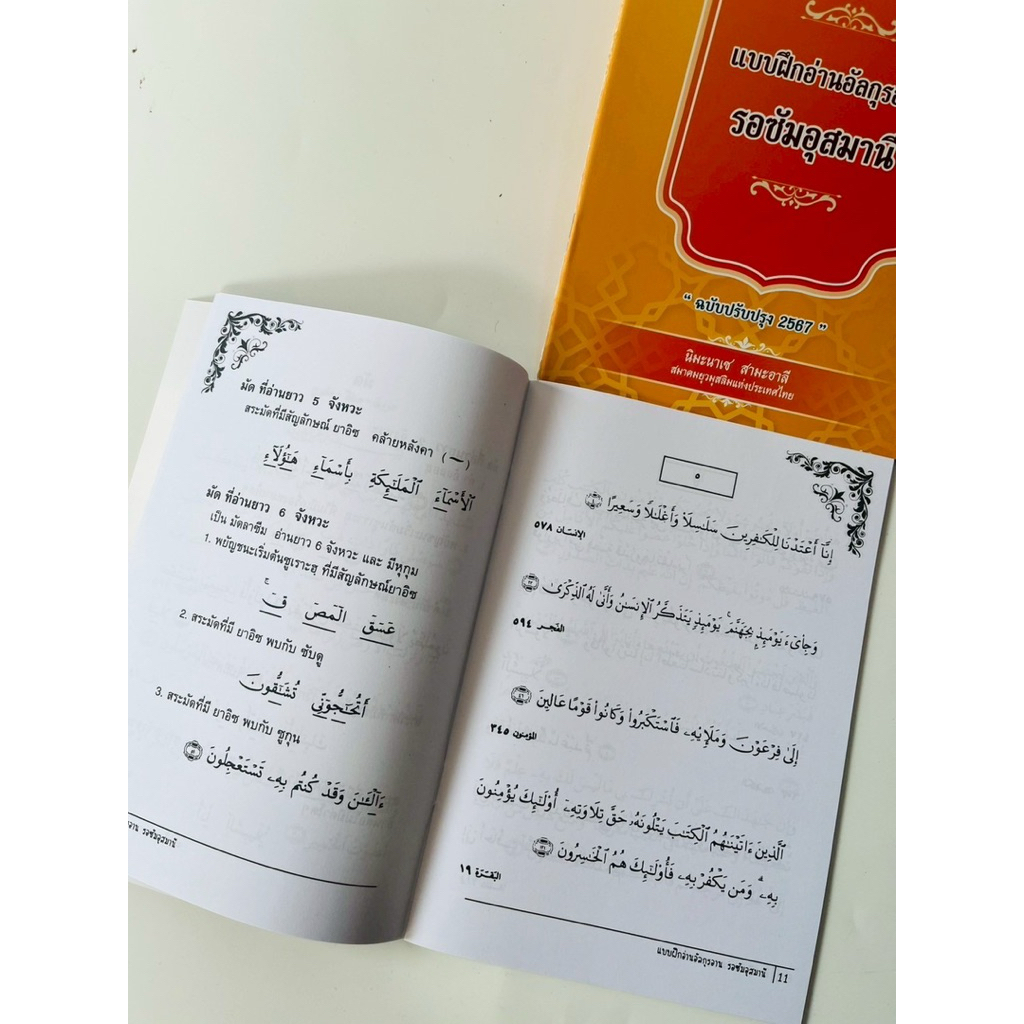 แบบฝึกอ่านอัลกุรอ
รอซัมอุสมานี
“ ฉบับปรับปรุง 2567 ”
นิมะนาเซ สามะอาลี
สมาคมยุวมุสลิมแห่งประเทศไทย
มัด ที่อ่านยาว 5 จังหวะ
สระมัดที่มีสัญลักษณ์ ยาอิซ คล้ายหลังคา (~)
ٱلْأَسْمَآءَ ٱلْمَلَٰٓئِكَةِ بِأَسْمَآءِ هَٰٓؤُلَآءِ
มัด ที่อ่านยาว 6 จังหวะ
เป็น มัดลาซีม อ่านยาว 6 จังหวะ และ มีหุกุม
1. พยัญชนะเริ่มต้นซูเราะฮฺ ที่มีสัญลักษณ์ยาอิซ
عٓسٓقٓ الٓمٓصٓ قٓۚ
2. สระมัดที่มี ยาอิซ พบกับ ชับดู
أَتُحَٰٓجُّوٓنِّي تُشَٰٓقُّونَ
3. สระมัดที่มี ยาอิซ พบกับ ซูกุน
ءَآلْـَٰٔنَ وَقَدْ كُنتُم بِهِۦ تَسْتَعْجِلُونَ ۝٥١
าน รอซัมอุสมานี
٥
إِنَّآ أَعْتَدْنَا لِلْكَٰفِرِينَ سَلَٰسِلَا۟ وَأَغْلَٰلًا وَسَعِيرًا ۝٤
الإنسان ٥٧٨
وَجِا۟ىٓءَ يَوْمَئِذٍۭ بِجَهَنَّمَۚ يَوْمَئِذٍ يَتَذَكَّرُ ٱلْإِنسَٰنُ وَأَنَّىٰ لَهُ ٱلذِّكْرَىٰ ۝٢٣
الفجر ٥٩٤
إِلَىٰ فِرْعَوْنَ وَمَلَإِي۟هِۦ فَٱسْتَكْبَرُوا۟ وَكَانُوا۟ قَوْمًا عَالِينَ ۝٤٦
المؤمنون ٣٤٥
ٱلَّذِينَ ءَاتَيْنَٰهُمُ ٱلْكِتَٰبَ يَتْلُونَهُۥ حَقَّ تِلَاوَتِهِۦٓ أُو۟لَٰٓئِكَ يُؤْمِنُونَ
بِهِۦۗ وَمَن يَكْفُرْ بِهِۦ فَأُو۟لَٰٓئِكَ هُمُ ٱلْخَٰسِرُونَ ۝١٢١
البقرة ١٩
แบบฝึกอ่านอัลกุรอาน รอซัมอุสมานี | 11